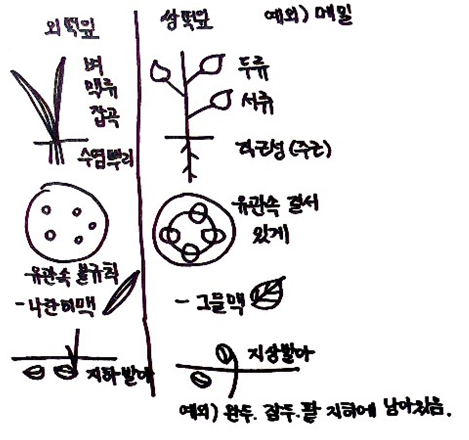 외떡잎
벼
맥류
잡곡
수염뿌리
유관속 불규칙
- 나란히맥
지하발아
쌍떡잎
예외) 메밀
두류
서류
직근성 (주근)
유관속 질서
있게
- 그물맥
지상발아
예외) 완두. 잠두. 팥 지하에 남아있음.